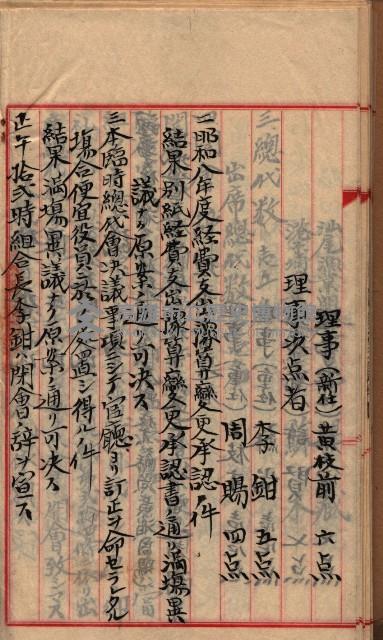 理事（新任）黄枝前 六点
理事次点者 李鉗 五点
周賜 四点
二昭和八年度経費支出予算変更承認ノ件
結果別紙経費支出予算変更承認書ノ通リ満場異
議ナク原案ノ通リ可決ス
三本臨時総代会決議事項ニシテ官庁ヨリ訂正ヲ命セラレタル
場合便宜役員ニ於テ処置シ得ルノ件
結果満場異議ナク原案ノ通リ可決ス
正午拾弐時組合長李鉗ハ閉会ノ辞ヲ宣ス